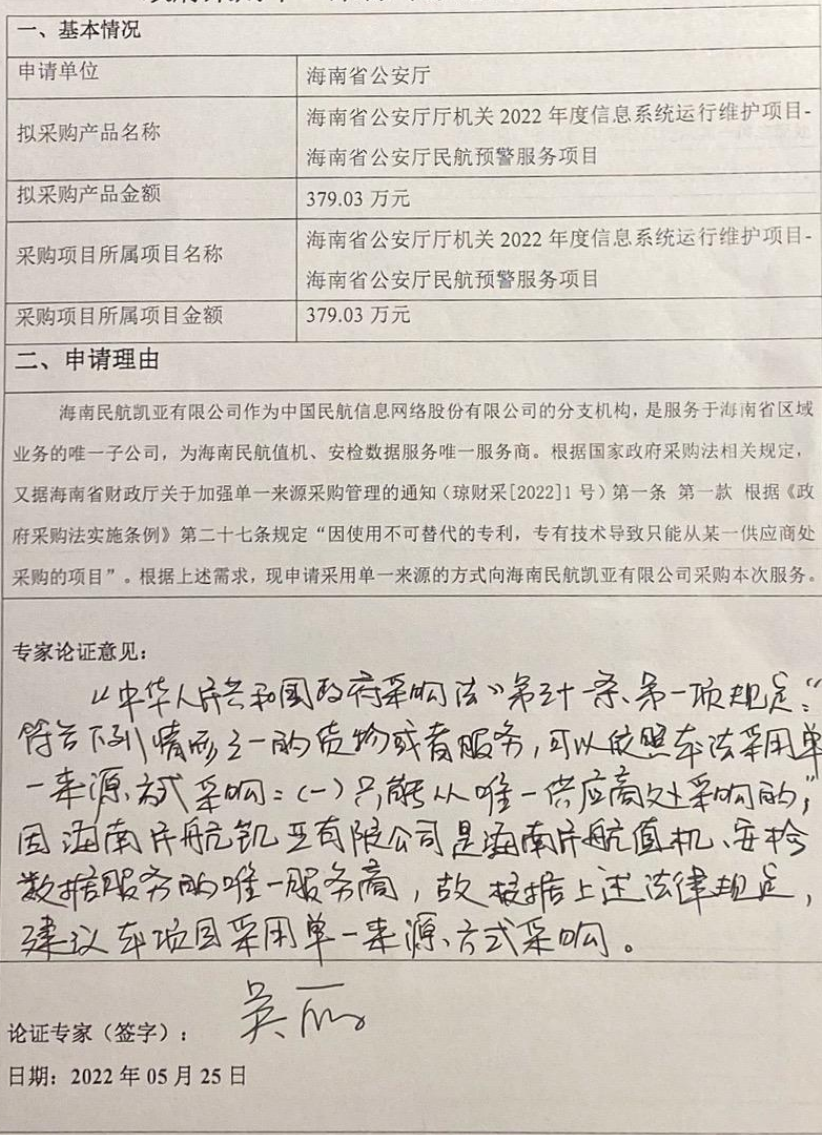 一、基本情况
申请单位
海南省公安厅
拟采购产品名称
海南省公安厅厅机关 2022 年度信息系统运行维护项目-
海南省公安厅民航预警服务项目
拟采购产品金额
379.03 万元
采购项目所属项目名称
海南省公安厅厅机关 2022 年度信息系统运行维护项目-
海南省公安厅民航预警服务项目
采购项目所属项目金额
379.03 万元
二、申请理由
海南民航凯亚有限公司作为中国民航信息网络股份有限公司的分支机构，是服务于海南省区域
业务的唯一子公司，为海南民航值机、安检数据服务唯一服务商。根据国家政府采购法相关规定，
又据海南省财政厅关于加强单一来源采购管理的通知（琼财采[2022]1 号）第一条 第一款 根据《政
府采购法实施条例》第二十七条规定“因使用不可替代的专利，专有技术导致只能从某一供应商处
采购的项目”。根据上述需求，现申请采用单一来源的方式向海南民航凯亚有限公司采购本次服务。
专家论证意见：
《中华人民共和国政府采购法》第三十一条、第一项规定：“
符合下列情形之一的货物或者服务，可以依照本法采用单
一来源方式采购：（一）只能从唯一供应商处采购的；”
因海南民航凯亚有限公司是海南民航值机、安检
数据服务的唯一服务商，故根据上述法律规定，
建议本项目采用单一来源方式采购。
论证专家（签字）：
吴丽
日期：2022 年 05 月 25 日